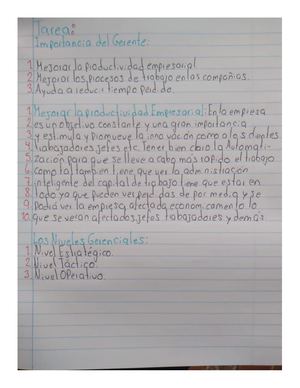 Tarea:
Importancia del Gerente:
1. Mejorar la productividad empresarial
2. Mejorar los procesos de trabajo en las compañias.
3. Ayuda a reducir tiempo perdido.
Mejorar la productividad Empresarial: En la empresa
es un objetivo constante y una gran importancia
y estimula y promueve la innovación como a los
trabajadores, jefes etc. Tener bien claro la Automati-
zación para que se lleve a cabo mas rapido el trabajo
como tal tambien tiene que ver la administracion
inteligente del capital de trabajo tiene que estar en
todo ya que pueden ver perdidas de por media y se
Podria ver la empresa afectada economicamente lo
que se verian afectados, jefes trabajadores y demás.
Los Niveles Gerenciales:
1. Nivel Estratégico.
2. Nivel Táctico.
3. Nivel Operativo.